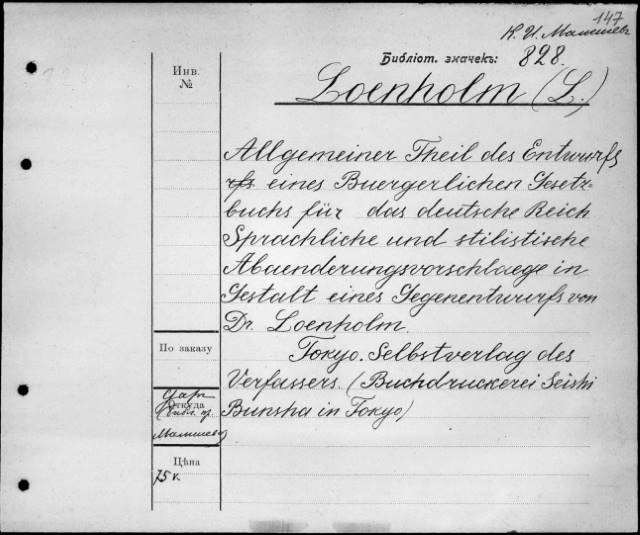 147
К. И. Малышев
Библіот. значекъ: 828.
Инв.
№
Loenholm (L.)
Allgemeiner Theil des Entwurfs
rfs eines Buergerlichen Gesetz-
buchs für das deutsche Reich
Sprachliche und stilistische
Abaenderungsvorschlaege in
Gestalt eines Gegenentwurfs von
Dr. Loenholm.
По заказу
Tokyo. Selbstverlag des
Verfassers. (Buchdruckerei Seishi
Bunsha in Tokyo)
Откуда
Малышева)
Цѣна
75 к.